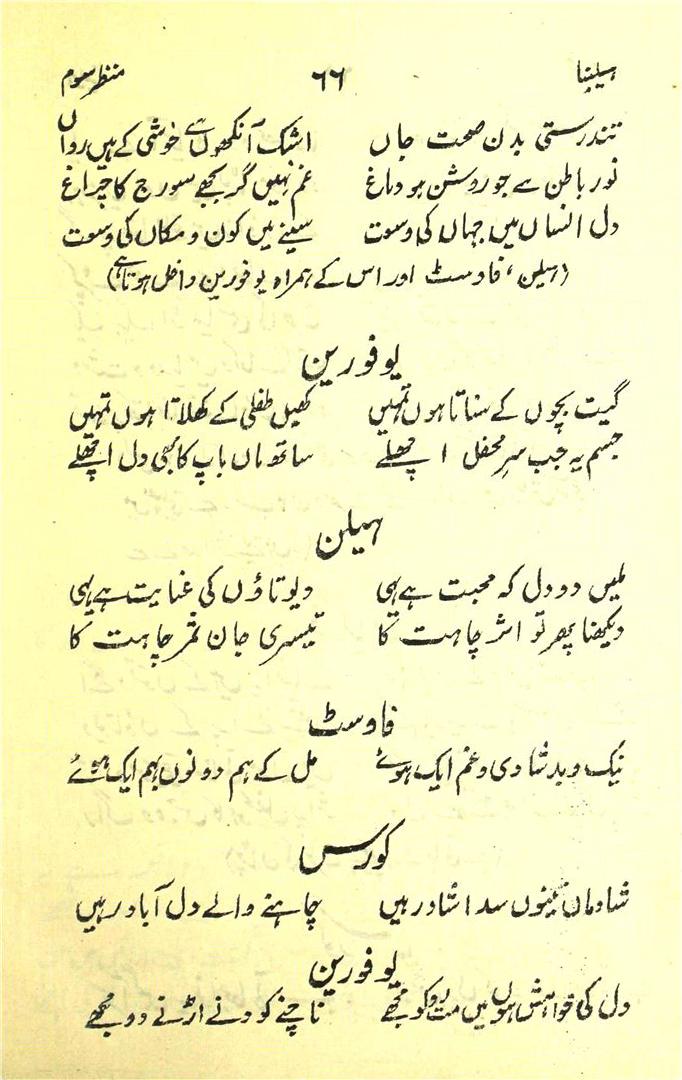 ہیلینا ۶۶ منظر سوم
تندرستی بدن صحت جاں اشک آنکھوں سے خوشی کے ہیں رواں
نور باطن سے جو روشن ہو دماغ غم نہیں گر بجھے سورج کا چراغ
دل انساں میں جہاں کی وسعت سینے میں کون و مکاں کی وسعت
(ہیلن، فاوسٹ اور اس کے ہمراہ یوفورین داخل ہوتا ہے)
یوفورین
گیت بچوں کے سناتا ہوں تمہیں کھیل طفلی کے کھلاتا ہوں تمہیں
جسم یہ جب سرِ محفل اچھلے ساتھ ماں باپ کا بھی دل اچھلے
ہیلن
ملیں دو دل کہ محبت ہے یہی دیوتاؤں کی عنایت ہے یہی
دیکھنا پھر تو اثر چاہت کا تیسری جان ثمر چاہت کا
فاوسٹ
نیک و بد شادی و غم ایک ہوئے مل کے ہم دونوں بہم ایک ہوئے
کورس
شادماں تینوں سدا شاد رہیں چاہنے والے دل آباد رہیں
یوفورین
دل کی خواہش ہوں میں مت روکو مجھے ناچنے کودنے اڑنے دو مجھے